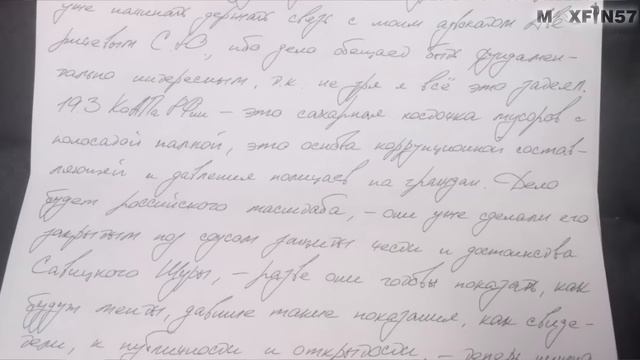 MOXFIN57
уже начинать держать связь с моим адвокатом Две
С.Ю., ибо дело обещает быть фундамен-
тально интересным, т.к. не зря я всё это затеял.
19.3 КоАПа РФии – это сахарная косточка мусоров с
полосатой палкой, это основа коррупционной состав-
ляющей и давления полицаев на граждан. Дело
будет российского масштаба, – они уже сделали его
закрытым под соусом защиты чести и достоинства
Савицкого Шуры, – разве они готовы показать, как
будут менты, давшие такие показания, как свиде-
тели, к публичности и открытости, – теперь